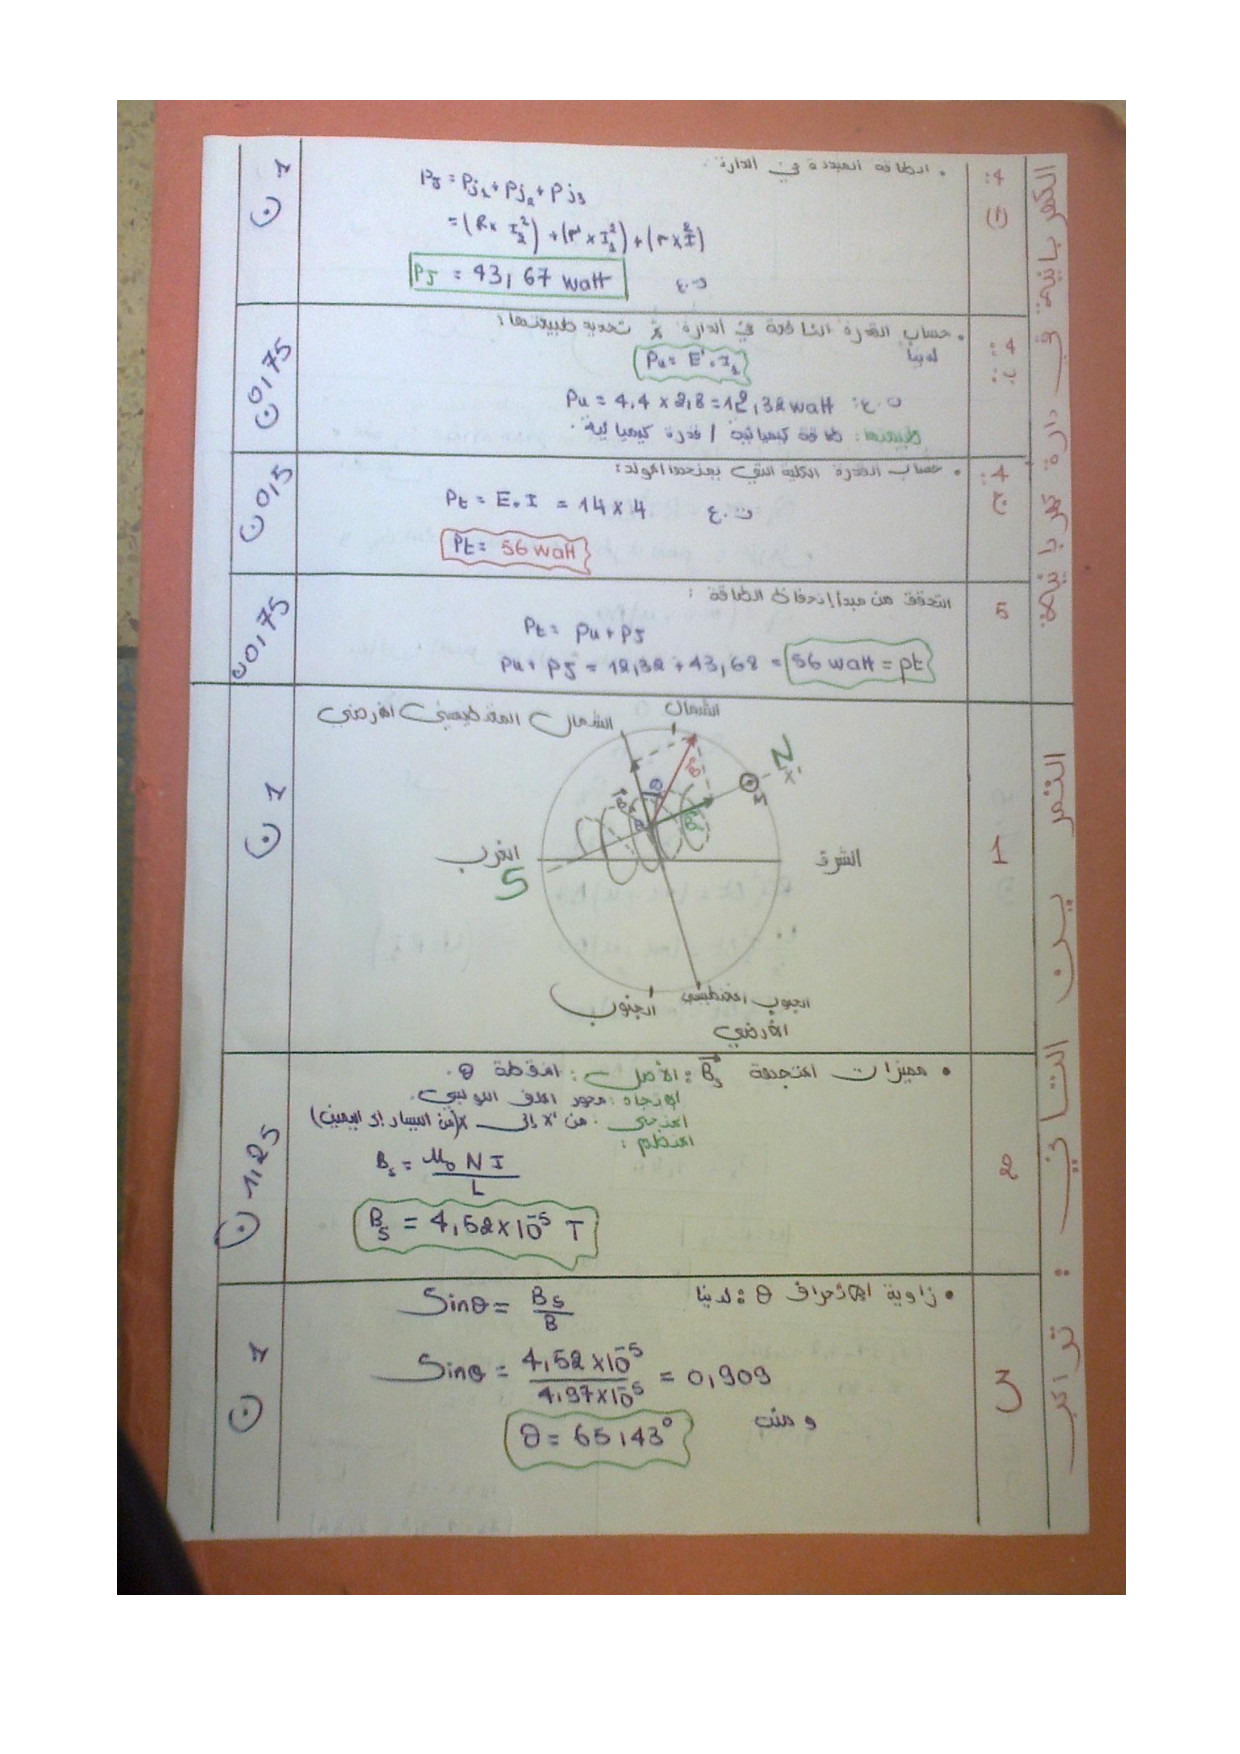 • الطاقة المبددة في الدارة:
4:
(أ
Pj = Pj1 + Pj2 + Pj3
= (R × I2²) + (r' × I1²) + (r × I²)
ت.ع
Pj = 43,67 watt
1
• حساب القدرة النافعة في الدارة تحديد طبيعتها:
4:
ب:
لدينا
Pu = E'. I1
ت.ع: Pu = 4,4 × 2,8 = 12,32 watt
طبيعتها: طاقة كيميائية / قدرة كيميائية.
0,75
• حساب القدرة الكلية التي يمنحها المولد:
4:
ج
Pt = E.I = 14 × 4
ت.ع
Pt = 56 watt
0,5
التحقق من مبدأ إنحفاظ الطاقة:
5
Pt = Pu + Pj
Pu + Pj = 12,32 + 43,68 = 56 watt = Pt
0,75
الشمال المغنطيسي الأرضي
الشمال
N
x'
M
B
Bs
θ
الغرب
S
الشرق
1
1
الجنوب
الجنوب المغنطيسي
الأرضي
• مميزات المتجهة Bs: الأصل: النقطة θ.
الإتجاه: محور الملف اللولبي.
المنحى: من x' إلى x (من اليسار إلى اليمين)
المنظم:
Bs = μ0 N I / L
Bs = 4,52×10⁻⁵ T
2
1,25
• زاوية الانحراف θ: لدينا
Sinθ = Bs / B
Sinθ = 4,52×10⁻⁵ / 4,97×10⁻⁵ = 0,909
و منه
θ = 65,43°
3
1